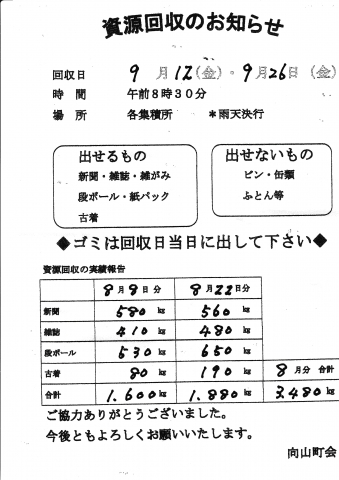 資源回収のお知らせ
回収日 9月12(金)・9月26日(金)
時間 午前8時30分
場所 各集積所 *雨天決行
出せるもの
新聞・雑誌・雑がみ
段ボール・紙パック
古着
出せないもの
ビン・缶類
ふとん等
◆ゴミは回収日当日に出して下さい◆
資源回収の実績報告
8月9日分 8月22日分
新聞 580 kg 560 kg
雑誌 410 kg 480 kg
段ボール 530 kg 650 kg
古着 80 kg 190 kg 8月分 合計
合計 1.600 kg 1.880 kg 3.480 kg
ご協力ありがとうございました。
今後ともよろしくお願いいたします。
向山町会